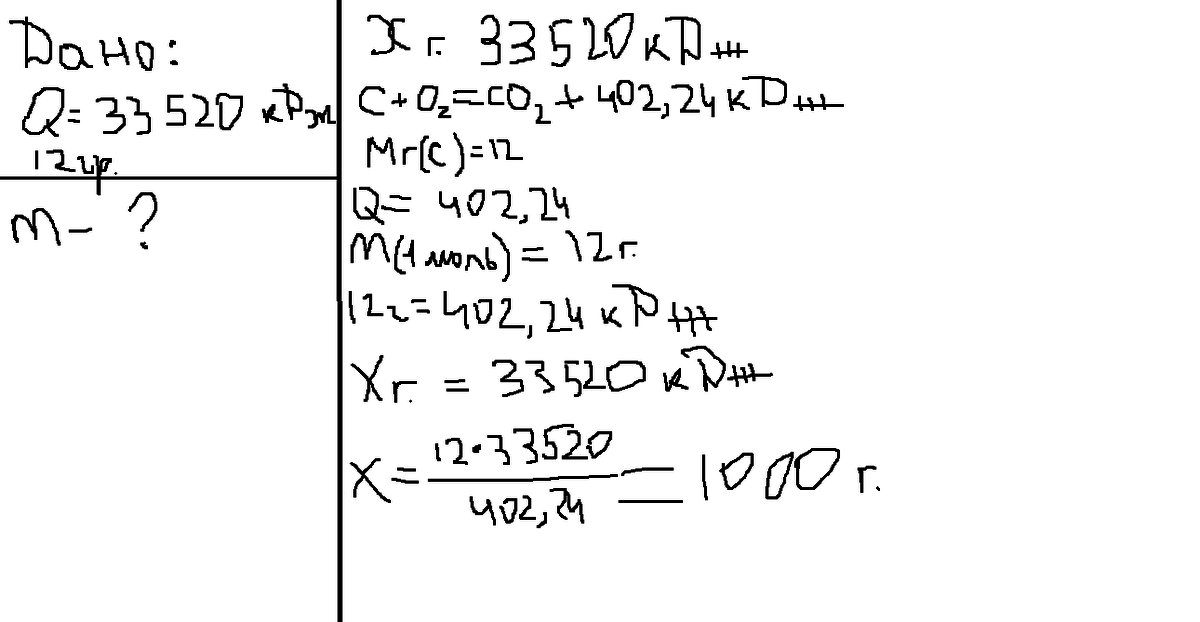 Дано:
Q= 33 520 кДж
12 гр.
m - ?
X г. 33520 кДж
C + O₂ = CO₂ + 402,24 кДж
Mr(C)=12
Q= 402,24
M(1 моль) = 12 г.
12 г = 402,24 кДж
X г. = 33520 кДж
X = 12·33520 / 402,24 = 1000 г.